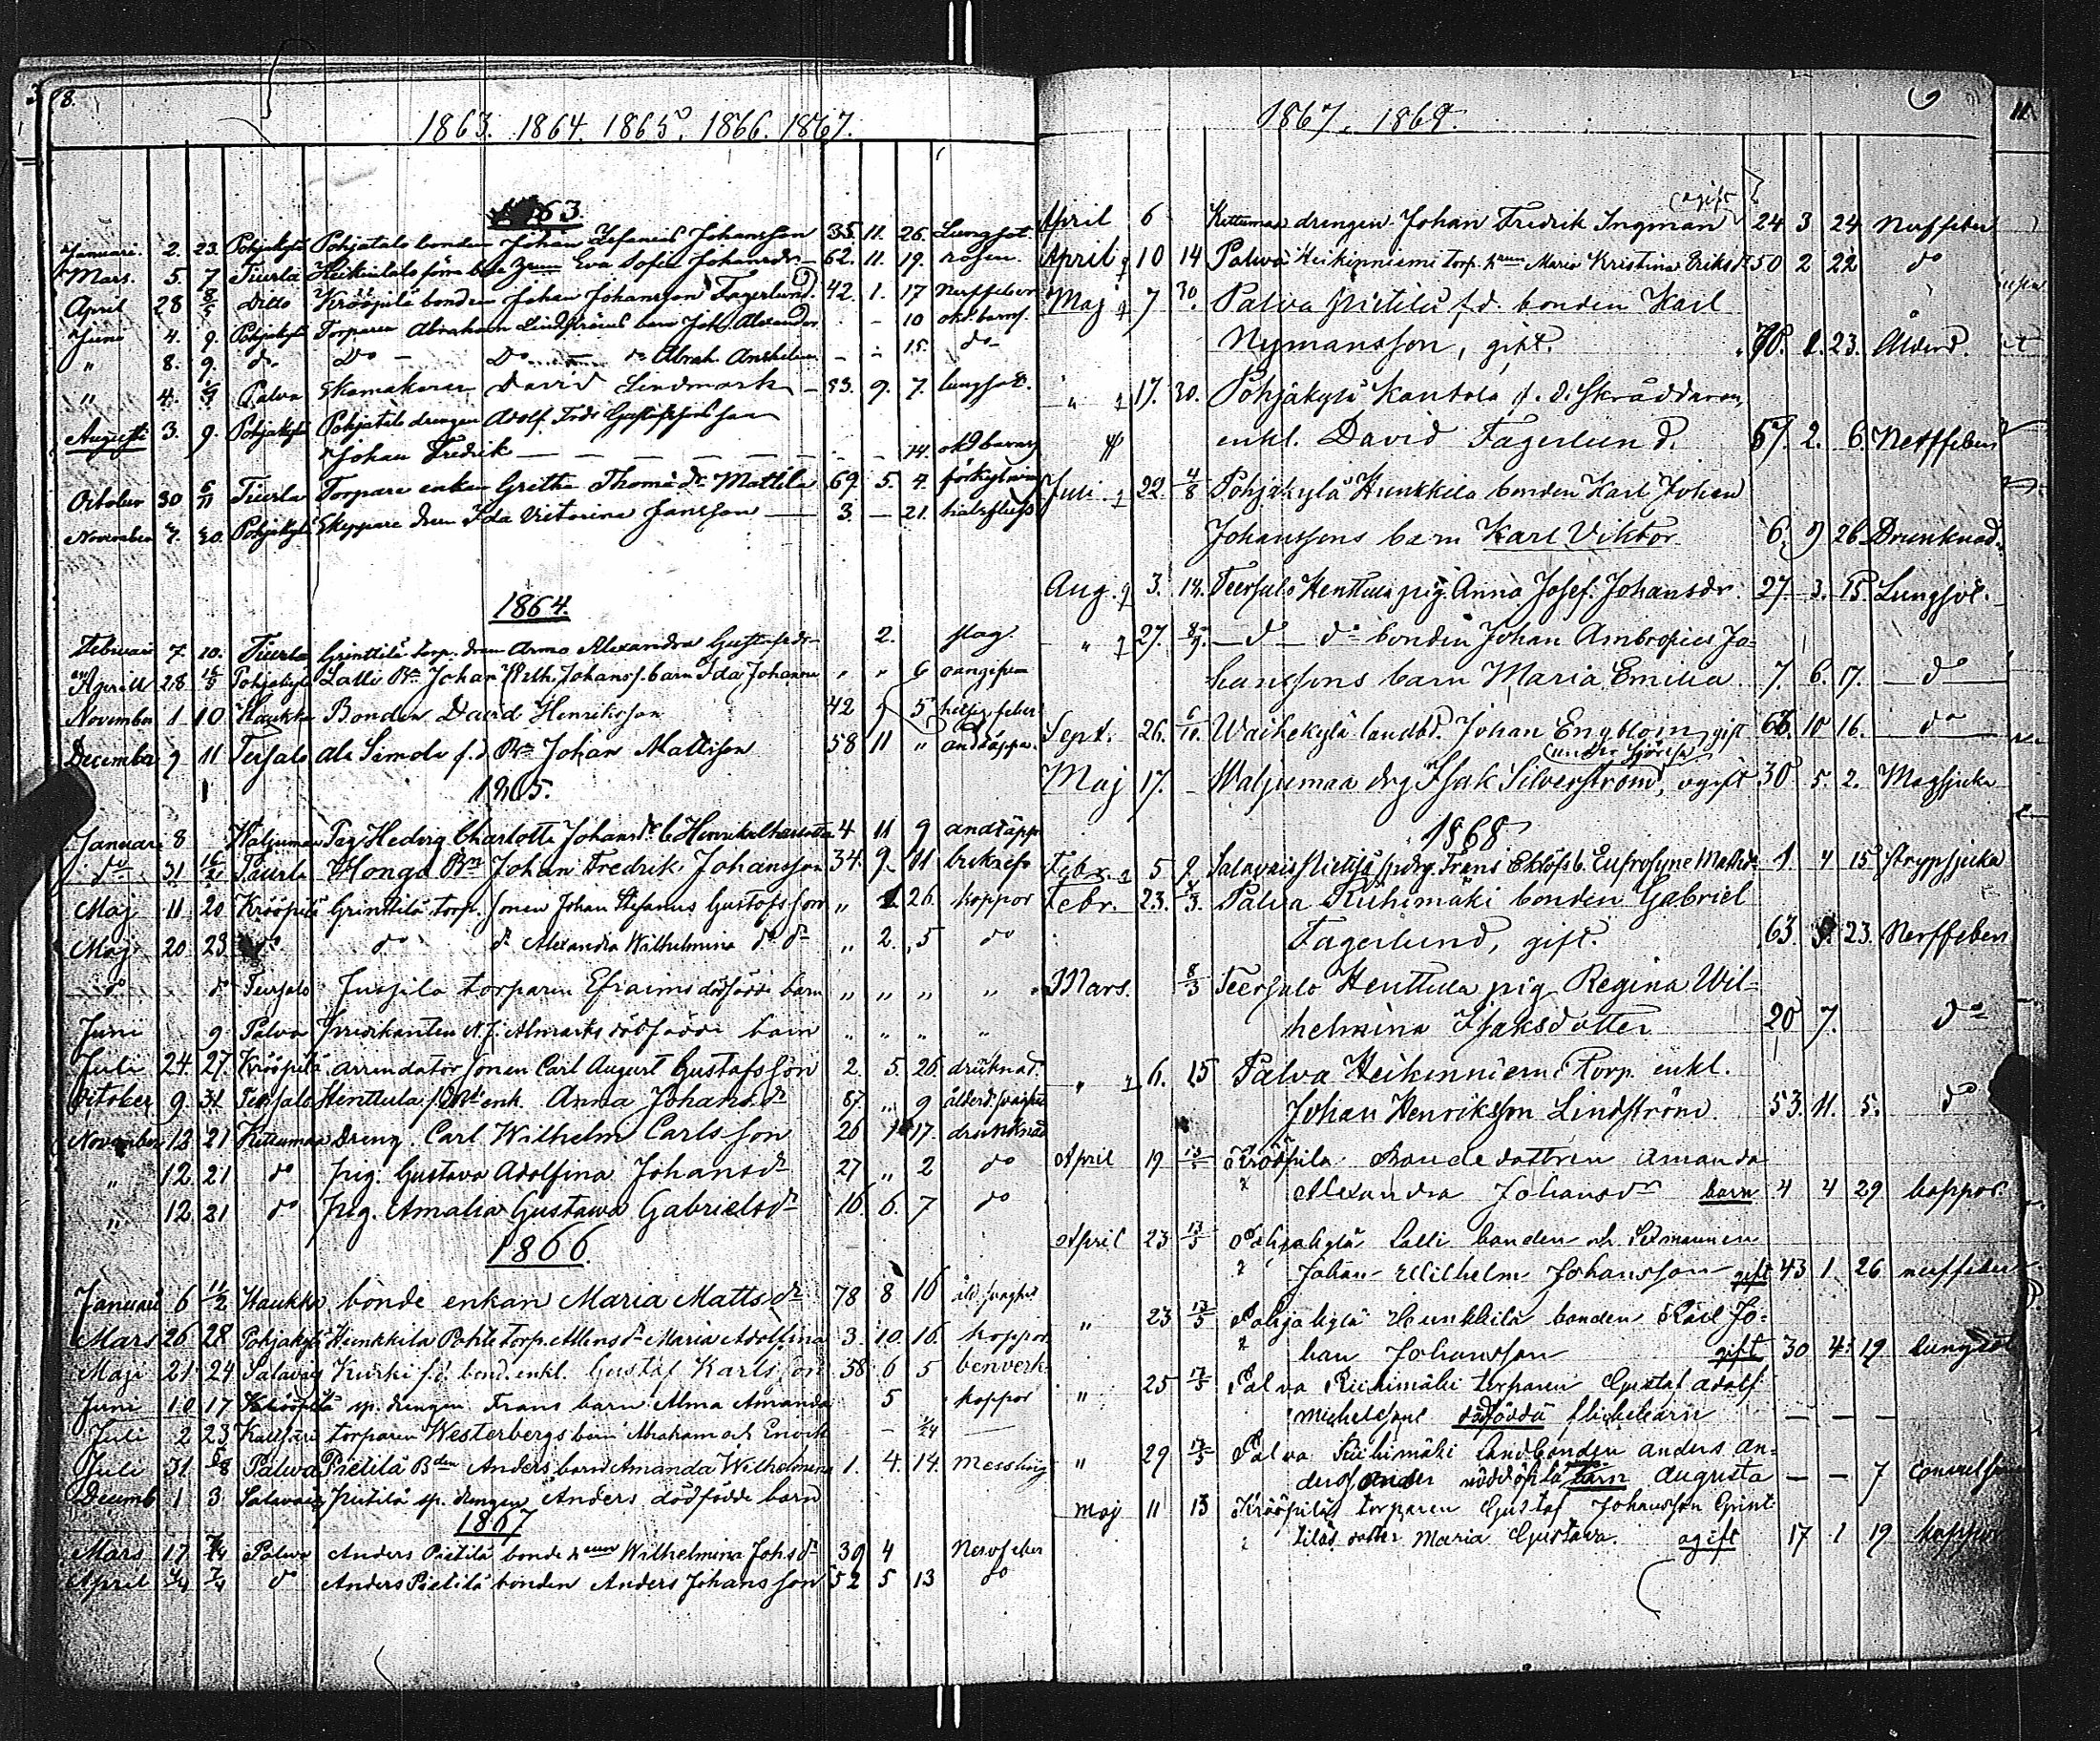 8.
1863. 1864. 1865. 1866. 1867.
1863.
Januari. 2. 23. Pohjakylä Pohjatalo bonden Johan Zefanias Johansson 35. 11. 26. Lungsot.
Mars. 5. 7 Tiurla Heikintalo Eva Sofia Johansdr 62. 11. 19. rosen.
April 28 8/5 Ditto Krööpilä bonden Johan Johansson Fagerlund. 42. 1. 17 Nerffeber
Juni 4. 9. Pohjakylä Torparen Abraham Lindströms barn Joh. Alexander - 10 okd barnsj.
" 8. 9. do Do - Do do Abrah. Anshelm - - 15. do
" 4. Palva Skomakaren David Lindmark - 83. 9. 7. lungsot.
Augusti 3. 9. Pohjakylä Pohjatalo drengen Adolf Fredr Gustafssons son
Johan Fredrik - - 14. okd barnsj
October 30 6/11 Tiurla Torpare enkan Gretha Thomædr Mattila 69. 5. 4. förkylning
November 7. 20. Pohjakylä Skeppare dren Ida Victorina Jansson 3. - 21. halsfluss
1864.
Februari 7. 10. Tiurla Grinttilä torp. dren Anna Alexandra Gustafsdr 2. slag.
April 28 16/5 Pohjakylä Lalli Bn Johan Wilh. Johanss. barn Ida Johanna " " 6 oangifven
November 1 10 Haukka Bonden David Henriksson 42 5 hetsig feber
December 9 11 Tersalo ale Simola f.d. Bn Johan Mattsson 58 11 " andtäppa.
1865.
Januari 8 Waljumaa Charlotta Johansdr b. Henrika Charlotta 4 11 9 andtäppa
do 31 16/2 Tiurla Hongo Bn Johan Fredrik Johansson 34. 9. 11
Maj 11 20 Krööpilä Grinttilä torp. sonen Johan Stefanus Gustafsson " 1 26. koppor
Maj 20 23 do do dr Alexandra Wilhelmina do dr " 2. 5 do
do do Tersalo Jussila torparen Efraims dödfödde barn " " " "
Juni 9 Palva Predikanten A. J. Almarks dödfödde barn " " " "
Juli 24. 27. Krööpilä arrendator sonen Carl August Gustafsson 2. 5. 26. drunknad.
October 9. 31. Tersalo Henttula enk. Anna Johansdr 87. " 9 ålderd. svaghet
November 12 21 Kettumaa Dreng. Carl Wilhelm Carlsson 26 17. drunknad
" 12 21 do pig. Gustava Adolfina Johansdr 27 " 2 do
" 12 21 do pig. Amalia Gustava Gabrielsdr 16. 6. 7 do
1866.
Januari 6 11/2 Haukka bonde enkan Maria Mattsdr 78 8 16 åld. svaghet
Mars 26 28 Pohjakylä Hunkkila torp. Maria Adolfina 3. 10. 16. koppor
Maji 21 24 Salavais Kurki f.d. bond. enkl. Gustaf Karlsson 58 6 5 benverk
Juni 10 17 Krööpilä sp. drengen Frans barn Alma Amanda 5 koppor
Juli 2 23 torparen Westerbergs barn Abraham och Enock - 1/24
Juli 31 Palva Pietilä Bden Anders barn Amanda Wilhelmina 1. 4. 14. Messling
Decemb 1 3. Salavais Pietilä sp. drengen Anders dödfödde barn
1867
Mars 17 7/4 Palva Anders Pietilä bonde hrun Wilhelmina Johsdr 39 4 Nervfeber
April 7/4 do Anders Pietilä bonden Anders Johansson 52 5 13 do
9
1867. 1868.
(ogift
April 6 Kettumaa drengen Johan Fredrik Ingman 24 3 24 Nerffeber
April 10 14 Palva Heikinniemi torp. hrun Maria Kristina Eriksdr 50 2 22 do
Maj 7 30. Palva Pietilä f.d. bonden Karl
Nymansson, gift. 70. 1. 23. Ålderd.
" 17. 30. Pohjakylä Kantola f. d. Skräddaren,
enkl. David Fagerlund. 67. 2. 6. Nerffeber
Juli 22. 4/8 Pohjakylä Hunkkila bonden Karl Johan
Johanssons barn Karl Viktor 6. 9 26 Drunknad.
Aug. 3. 14. Teersalo Henttula pig. Anna Josef. Johansdr. 27 3. 15. Lungsot.
" 27. 8/9. - d - do bonden Johan Ambrosius Jo-
hanssons barn Maria Emilia 7. 6. 17. do
Sept. 26. 6/10. Waihekylä landbd. Johan Engblom, gift 66. 10 16. do
(under sjöresa
Maj 17. - Waljumaa drg Isak Silverström, ogift 30 5. 2. Magsjuka
1868
Febr. 5 9 Salavais Pietilä spdrg. Frans Eklöfs b. Eufrosyne Mathilda 1. 4 15 strypsjuka
Febr. 23. 8/3. Palva Riihimäki bonden Gabriel
Fagerlund, gift. 63. 9. 23. Nerffeber
Mars. 8/3 Teersalo Henttula pig Regina Wil-
helmina Isaksdotter 20 7. do
" 6. 15 Palva Heikinniemi Torp. enkl.
Johan Henriksson Lindström. 53. 11. 5. do
April 19 13/5 Krööpilä Bondedottren Amanda
Alexandra Johansdr barn 4 4 29 koppor
April 23 13/5 Pohjakylä Lalli bonden och Sexmannen
Johan Wilhelm Johansson gift 43 1 26 nerffeber
" 23 13/5 Pohjakylä Hunkkila bonden Karl Jo-
han Johansson gift 30 4 19 lungsot
" 25 13/5 Palva Riihimäki torparen Gustaf Adolf
Michelssons dödfödda flickebarn - - -
" 29 13/5 Palva Riihimäki landbonden Anders An-
derssons nöddöpta barn Augusta - - 7
Maj 11 13 Krööpilä torparen Gustaf Johansson Grint-
tiläs dotter Maria Gustava. ogift 17 1 19 koppor
11